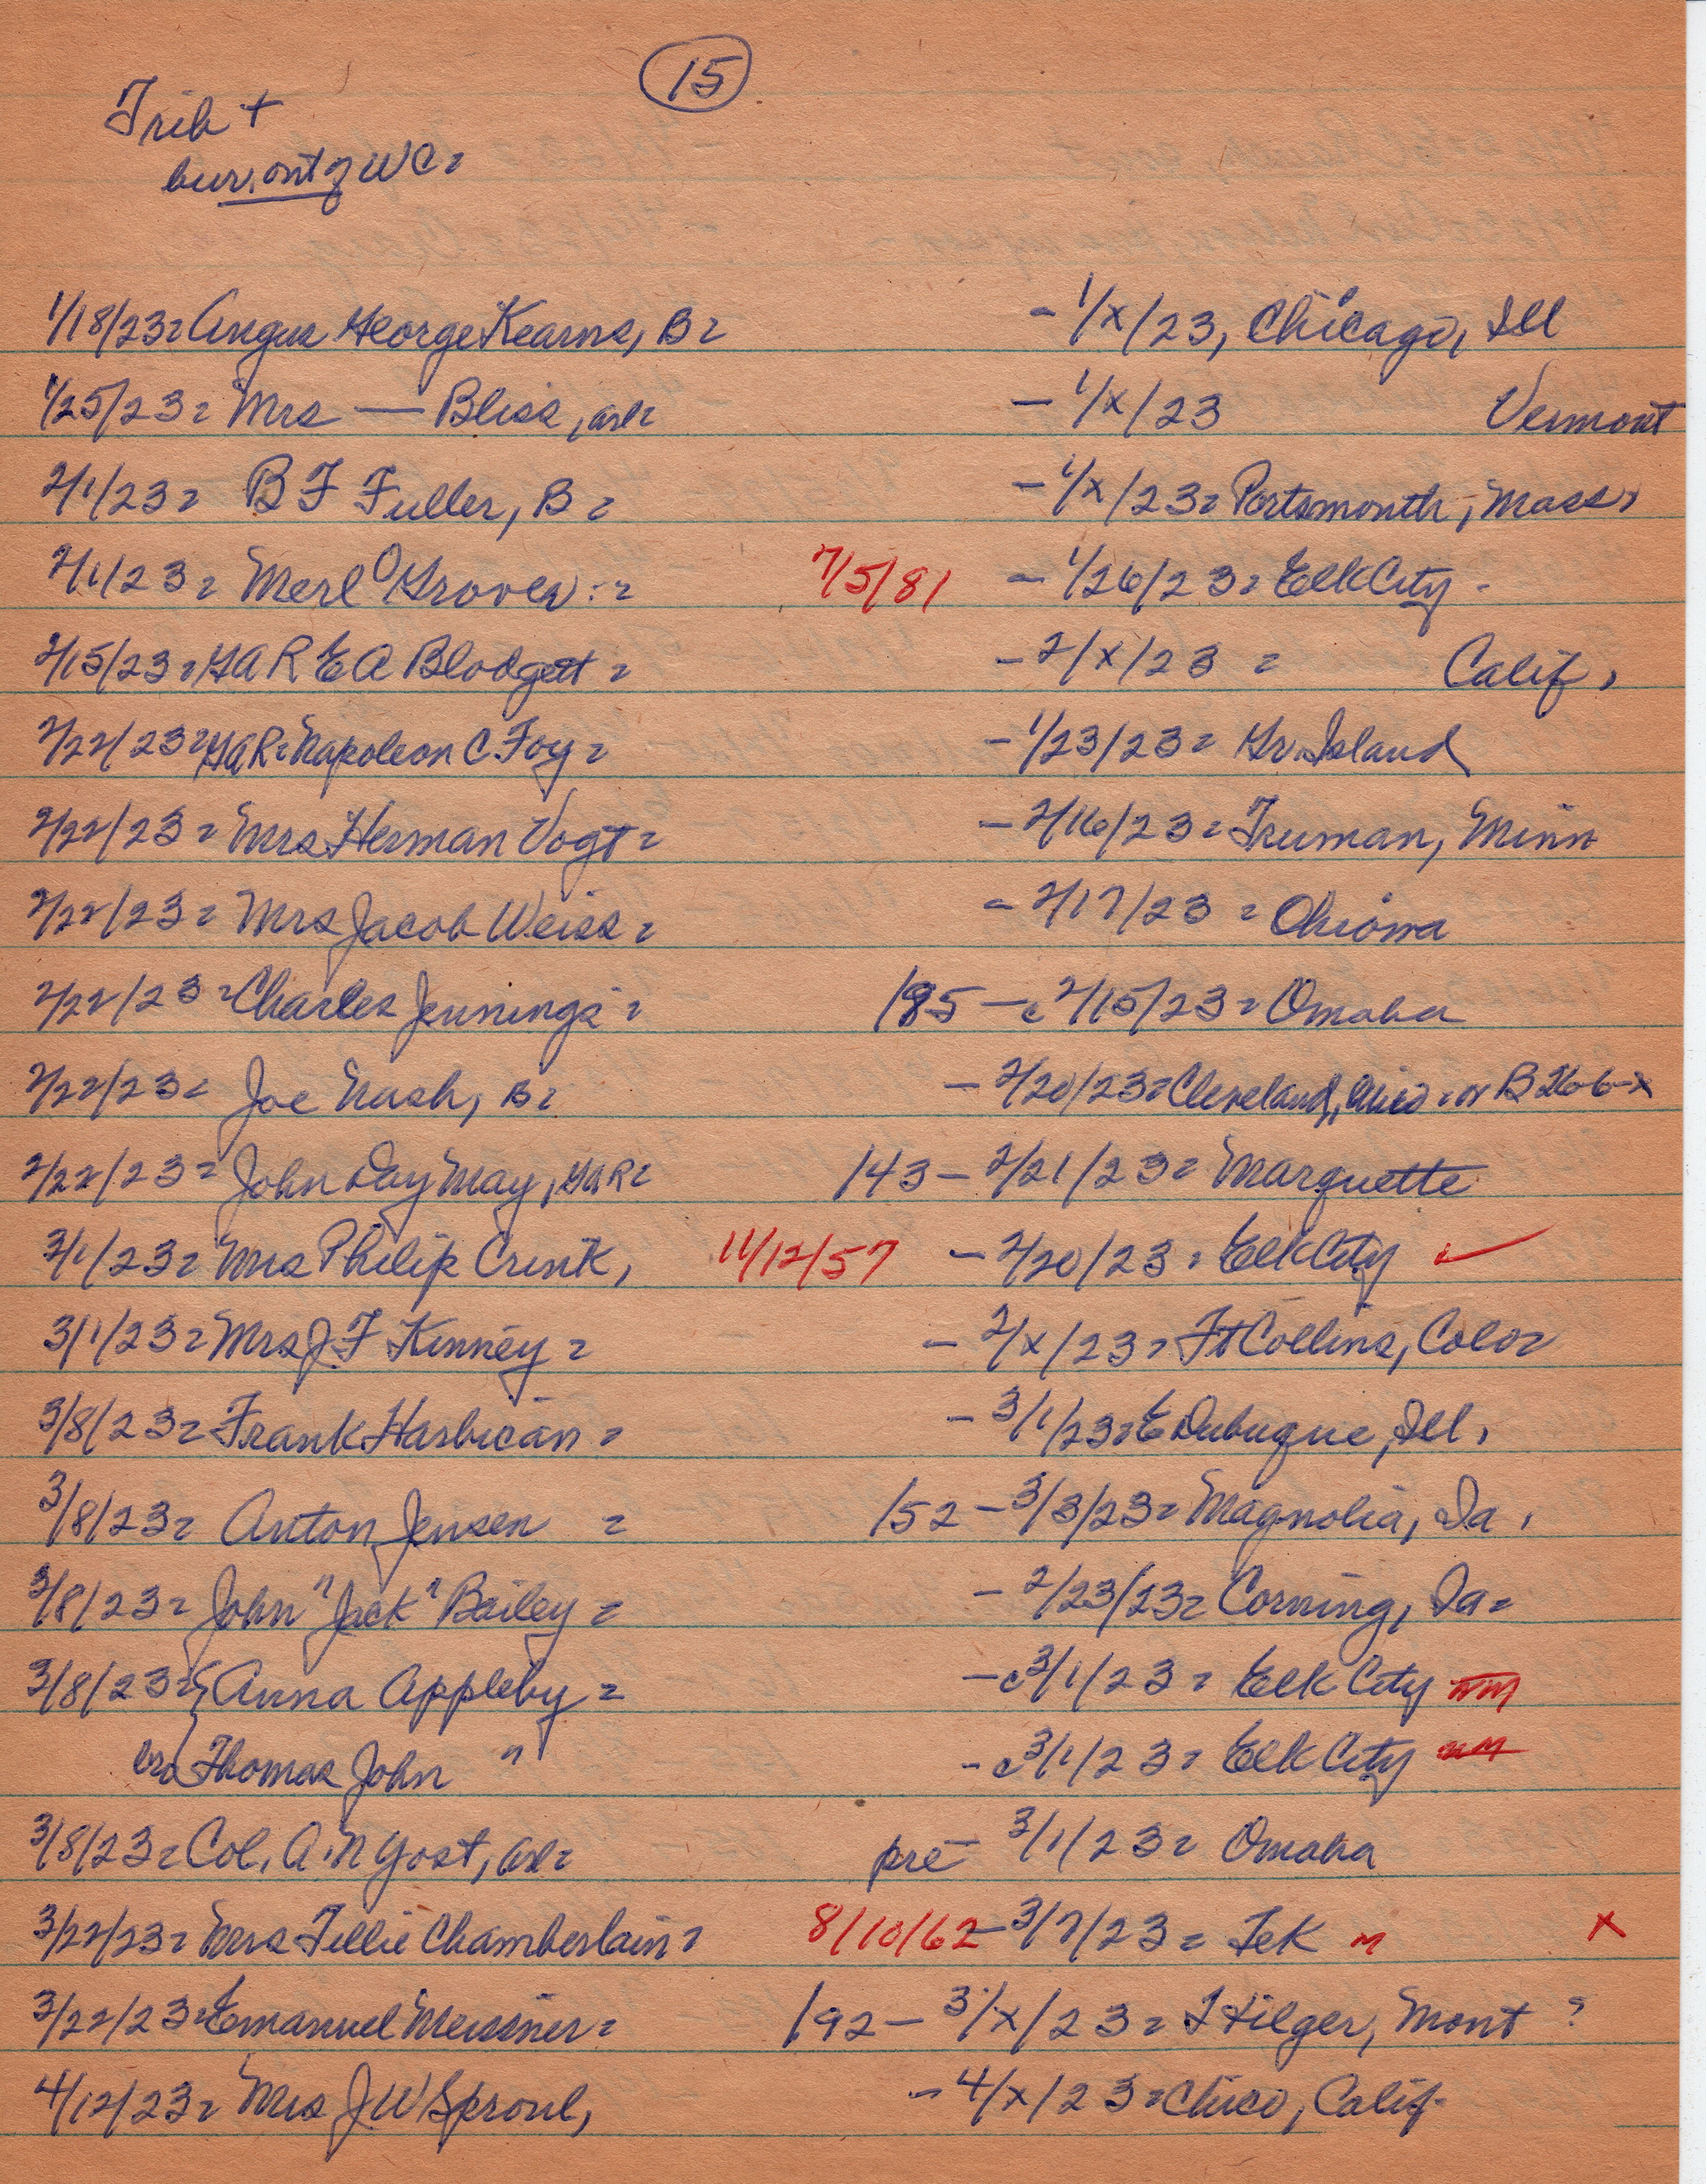 15
Trib +
bur. out of WC =
1/18/23 = Angus George Kearns, B = - 1/x/23, Chicago, Ill
1/25/23 = Mrs — Bliss, arl = - 1/x/23 Vermont
2/1/23 = B F Fuller, B = - 1/x/23 = Portsmouth, Mass,
2/1/23 = Merl Grover = 7/5/81 - 1/26/23 = Elk City -
2/15/23 = GAR E A Blodgett = - 2/x/23 = Calif,
2/22/23 = GAR = Napoleon C. Foy = - 1/23/23 = Gr. Island
2/22/23 = Mrs Herman Vogt = - 2/16/23 = Truman, Minn
2/22/23 = Mrs Jacob Weiss = - 2/17/23 = Ohiowa
2/22/23 = Charles Jennings = 185 - c 2/15/23 = Omaha
2/22/23 = Joe Nash, B = - 2/20/23 = Cleveland, = or B 266-x
2/22/23 = John Day May, GAR = 143 - 2/21/23 = Marquette
3/1/23 = Mrs Philip Crink, 11/12/57 - 2/20/23 = Elk City ✓
3/1/23 = Mrs J. F Kinney = - 2/x/23 = Ft Collins, Colo =
3/8/23 = Frank Harbican = - 3/1/23 = E Dubuque, Ill,
3/8/23 = Anton Jensen = 152 - 3/3/23 = Magnolia, Ia,
3/8/23 = John "Jack" Bailey = - 2/23/23 = Corning, Ia =
3/8/23 = { Anna Appleby = - c 3/1/23 = Elk City nm
bro { Thomas John " - c 3/1/23 = Elk City nm
3/8/23 = Col. A. N Yost, arl = pre - 3/1/23 = Omaha
3/22/23 = Mrs Tillie Chamberlain = 8/10/62 - 3/7/23 = Tek m x
3/22/23 = Emanuel Meissner = 192 - 3/x/23 = Hilger, Mont ?
4/12/23 = Mrs J W Sproul, - 4/x/23 = Chico, Calif.